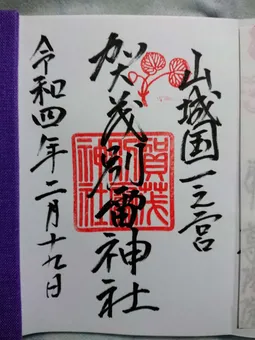 山城国一之宮
賀茂別雷神社
令和四年二月十九日
賀茂
別雷
神社